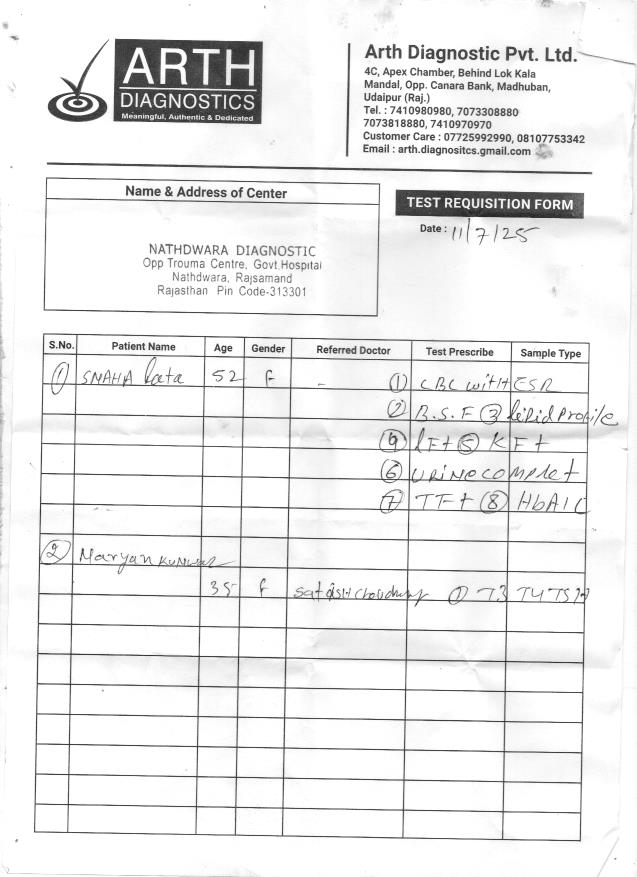 ARTH
DIAGNOSTICS
Meaningful, Authentic & Dedicated
Arth Diagnostic Pvt. Ltd.
4C, Apex Chamber, Behind Lok Kala
Mandal, Opp. Canara Bank, Madhuban,
Udaipur (Raj.)
Tel. : 7410980980, 7073308880
7073818880, 7410970970
Customer Care : 07725992990, 08107753342
Email : arth.diagnositcs.gmail.com
Name & Address of Center
NATHDWARA DIAGNOSTIC
Opp Trouma Centre, Govt.Hospital
Nathdwara, Rajsamand
Rajasthan Pin Code-313301
TEST REQUISITION FORM
Date : 11/7/25
S.No. Patient Name Age Gender Referred Doctor Test Prescribe Sample Type
① SNAHA lata 52 F - ① CBC WITH ESR
② B.S.F ③ lipid profile
④ LFt ⑤ KFt
⑥ URINE COMPlet
⑦ TFt ⑧ HbA1C
② Maryan KUNWAR
35 F Satish Choudhary ① T3 T4 TSH